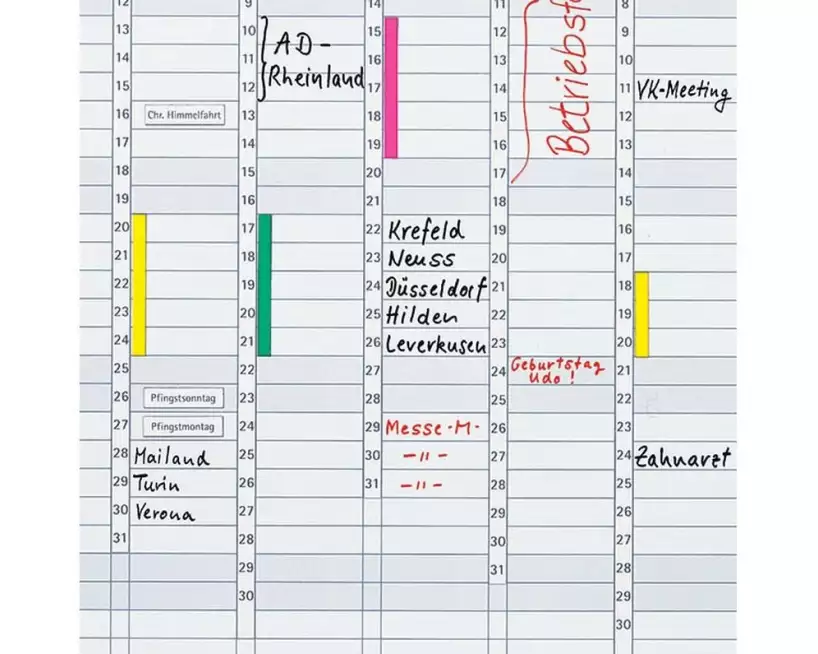 12
13
14
15
16 Chr. Himmelfahrt
17
18
19
20
21
22
23
24
25
26 Pfingstsonntag
27 Pfingstmontag
28 Mailand
29 Turin
30 Verona
31
9
10 AD-
11 Rheinland
12
13
14
15
16
17
18
19
20
21
22
23
24
25
26
27
28
29
30
14
15
16
17
18
19
20
21
22 Krefeld
23 Neuss
24 Düsseldorf
25 Hilden
26 Leverkusen
27
28
29 Messe-M-
30 -"-
31 -"-
11
12
13
14
15
16
17
Betriebsf
18
19
20
21
22
23
24 Geburtstag
Udo!
25
26
27
28
29
30
31
8
9
10
11 VK-Meeting
12
13
14
15
16
17
18
19
20
21
22
23
24 Zahnarzt
25
26
27
28
29
30